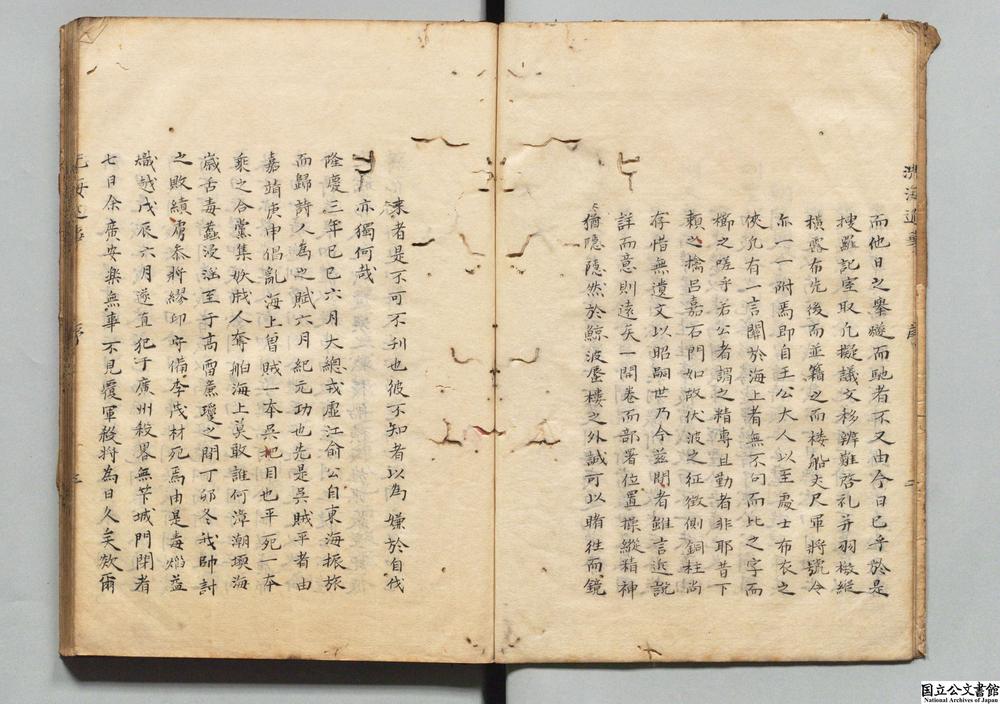 而他日之舉燧而馳者不又由今日已乎於是
搜羅記室取凡擬議文移辨難啓札并羽檄縱
橫露布先後而並籍之而樓船尺尺軍將號令
亦一一附焉即自王公大人以至處士布衣之
俠凡有一言關於海上者無不句而比之字而
櫛之嗟乎若公者謂之精專且勤者非耶昔下
賴之擒呂嘉石門如故伏波之征徵側銅柱尚
存惜無遺文以昭嗣世乃今茲閱者雖言近說
詳而意則遠矣一開卷而部署位置操縱精神
猶隱隱然於鯨波蜃樓之外誠可以睹往而鏡
來者是不可不刊也彼不知者以為嫌於自伐
亦獨何哉
隆慶三年巳巳六月大總戎虛江俞公自東海振旅
而歸詩人為之賦六月紀元功也先是吳賊平者由
嘉靖庚申倡亂海上曾賊一本吳把目也平死一本
乘之合黨集嫉戕人奪舶海上莫敢誰何漳潮瓊海
歲舌毒蠚浸淫至于高雷廉瓊之間丁卯冬我帥討
之敗績虜叅將繆印守備李茂材死焉由是毒熖益
熾越戊辰六月遂直犯于廣州殺畧無筭城門閉者
七日余廣安樂無事不見覆軍殺將為日久矣欻爾
洴海近事
序
二
序
三
国立公文書館
National Archives of Japan